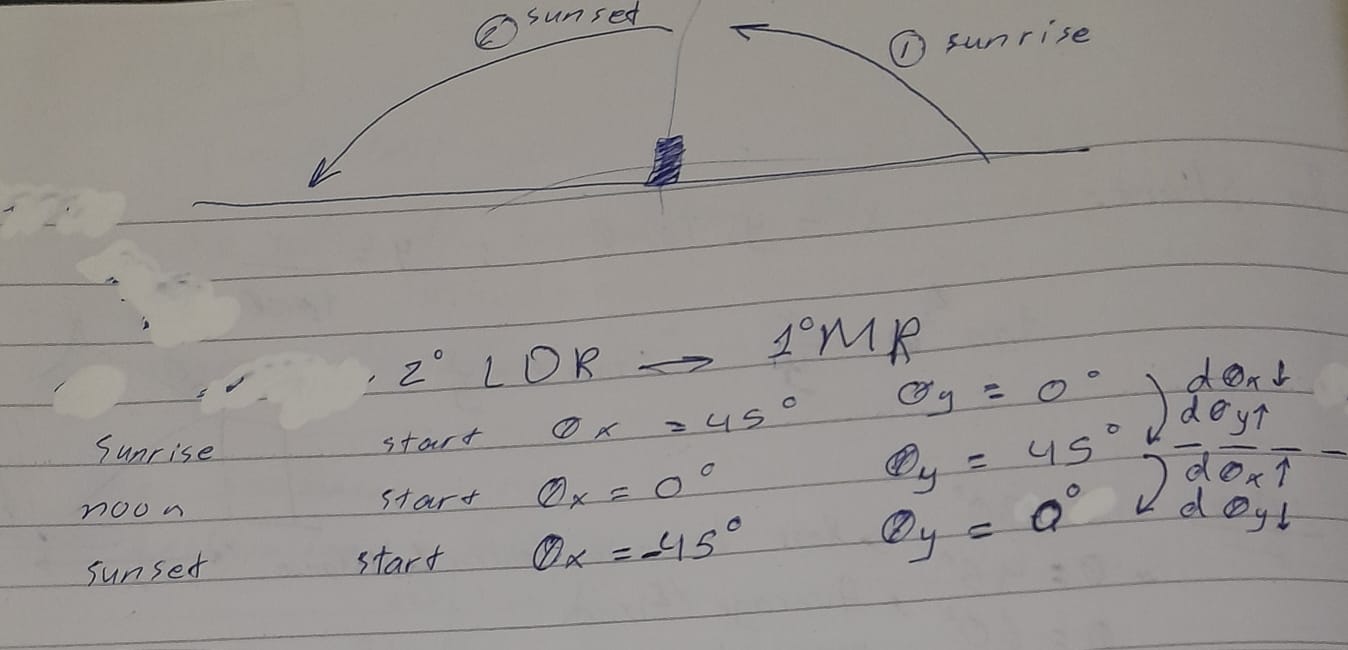 ② sunset
① sunrise
2° LDR → 1° MR
Sunrise start θx = 45° θy = 0° dθx↓
dθy↑
noon start θx = 0° θy = 45° dθx↑
sunset start θx = -45° θy = 0° dθy↓